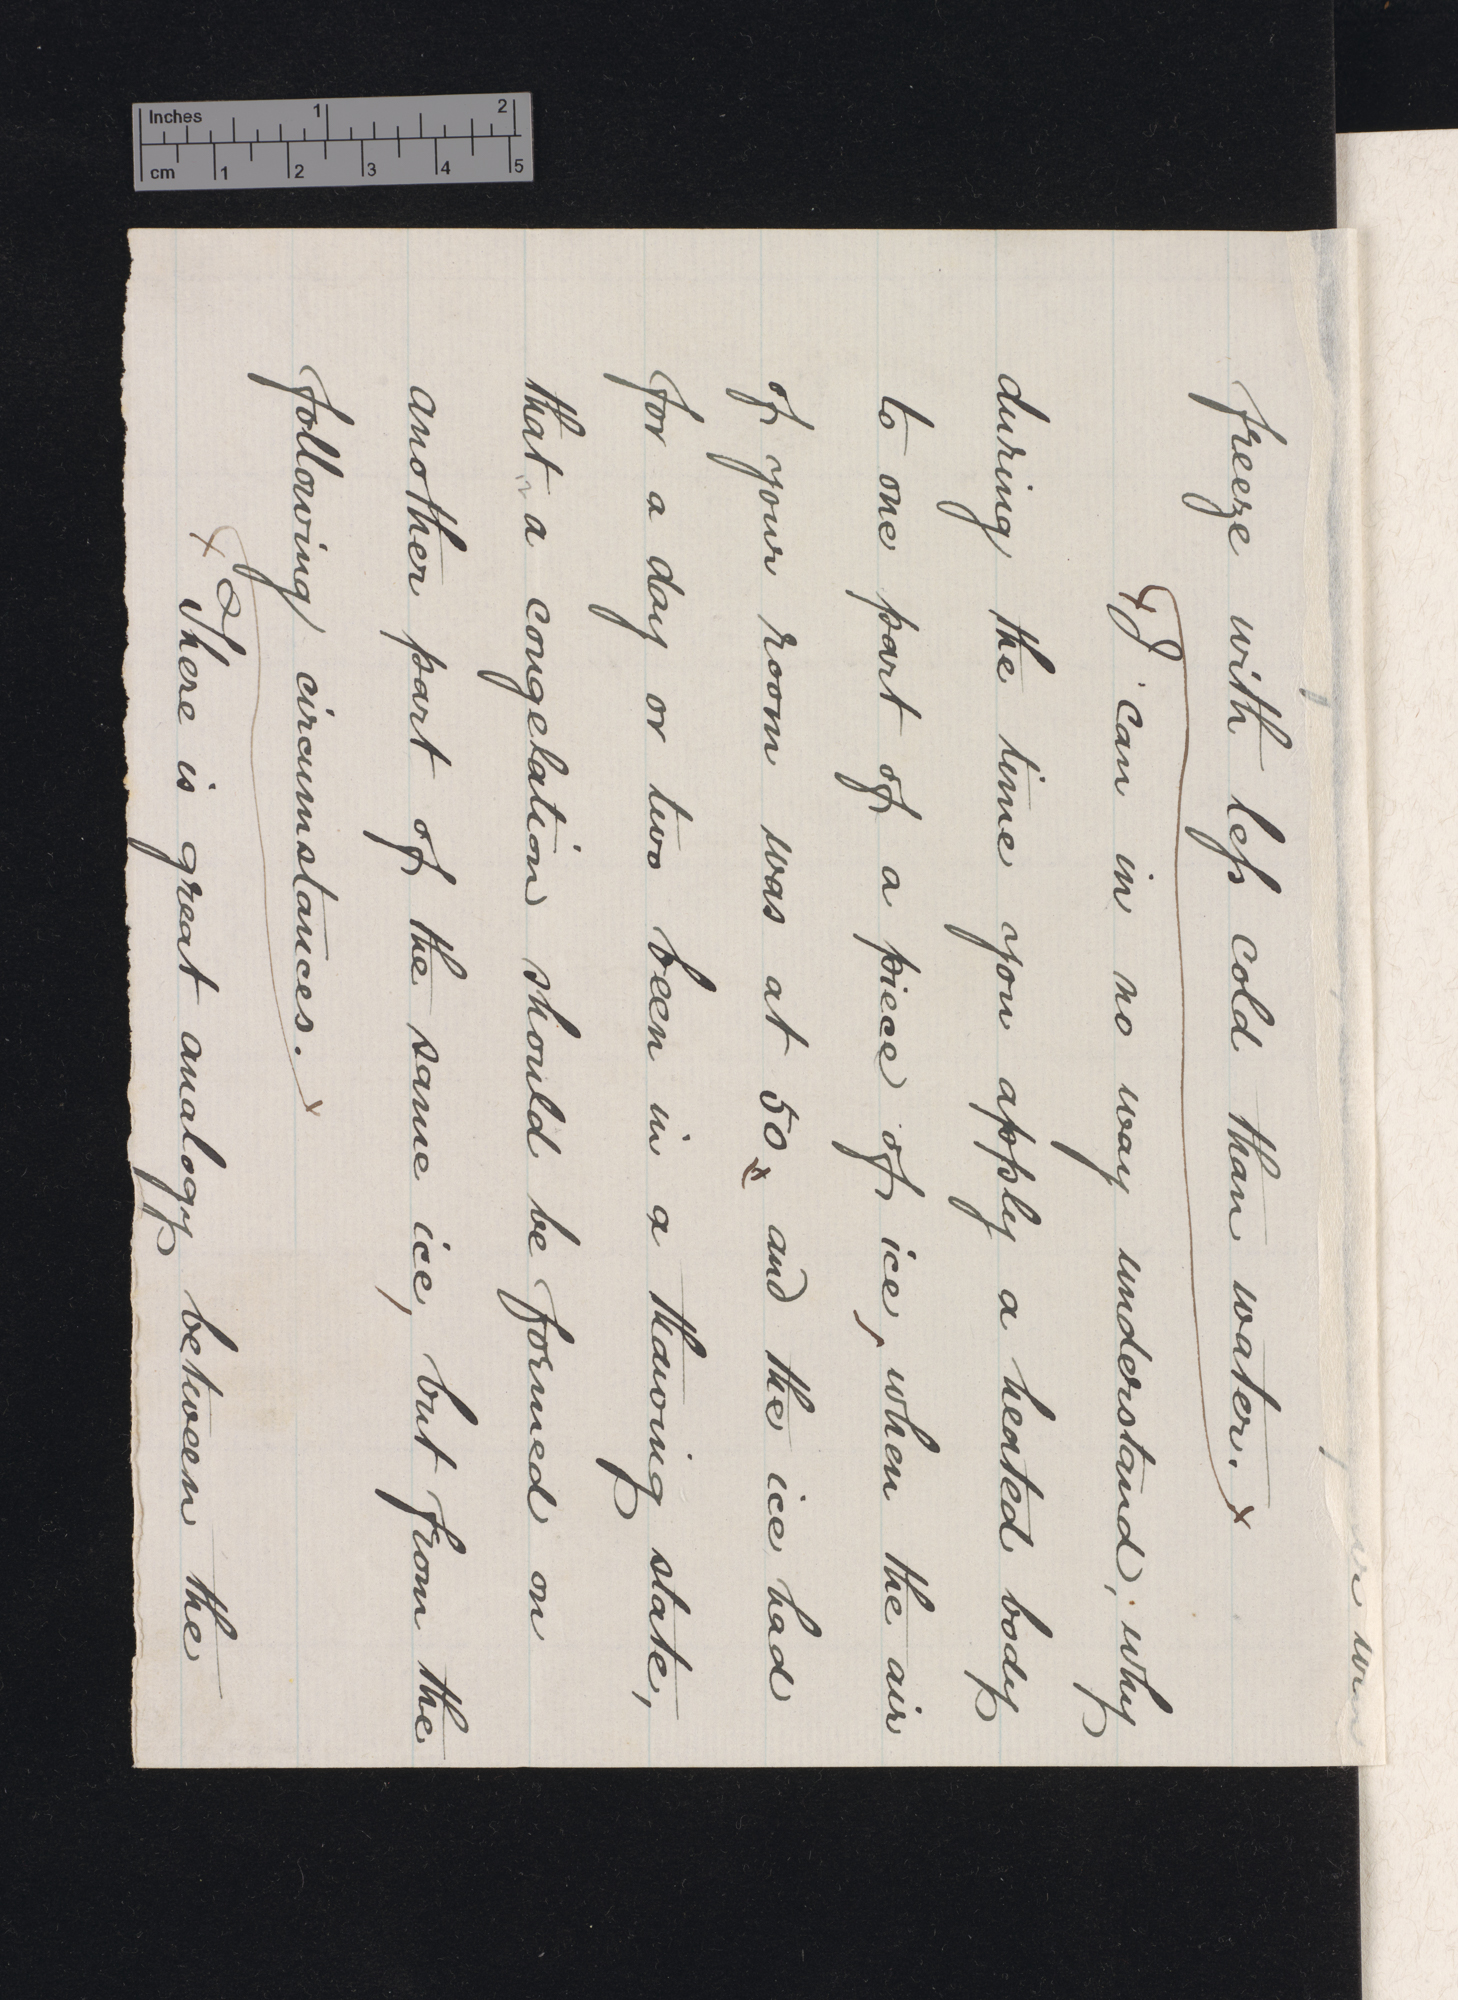 Inches 1 2
cm 1 2 3 4 5
freeze with less cold than water.
I can in no way understand, why
during the time you apply a heated body
to one part of a piece of ice, when the air
of your room was at 50 and the ice had
for a day or two been in a thawing state,
that a congelation should be formed on
another part of the same ice, but from the
following circumstances.
There is great analogy between the